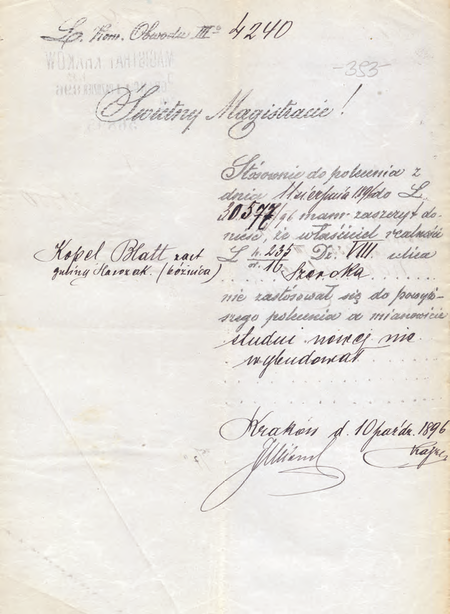 L. Kom. Obwodu III° 4240
-353-
Świetny Magistracie!
Stosownie do polecenia z
dnia 11 sierpnia 1896 do L
30577/96 mam zaszczyt do-
nieść, że właściciel realności
L n. 235 Dz. VIII ulica
st. 16 Szeroka
Kopel Blatt zast
gminy (bóżnica)
nie zastosował się do powyż-
szego polecenia a mianowicie
studni nowej nie
wybudował
Kraków d. 10 paźdz. 1896